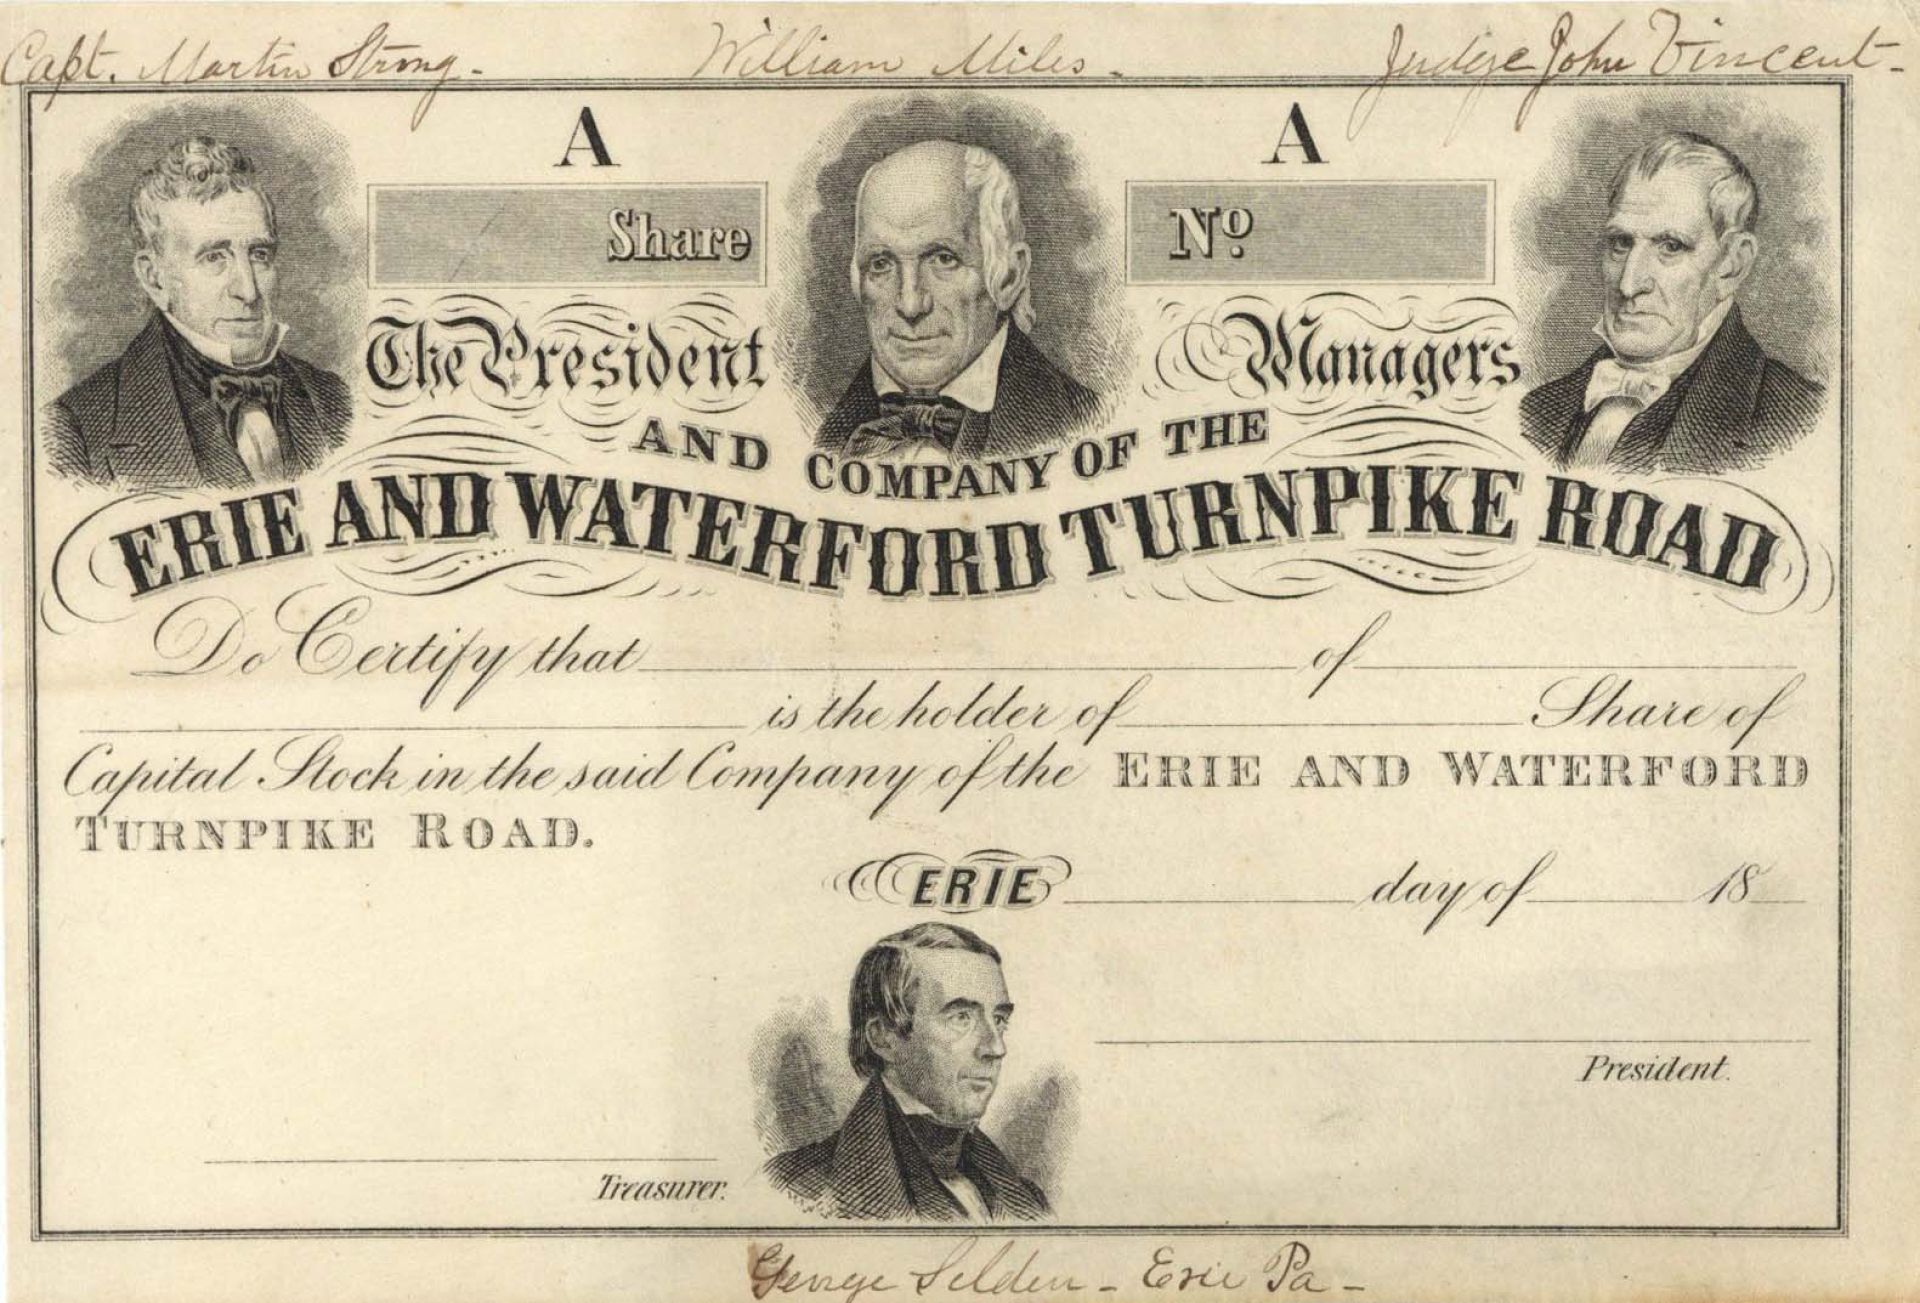 Capt. Martin Strong- William Miles- Judge John Vincent-
A A
Share Nº
The President Managers
AND COMPANY OF THE
ERIE AND WATERFORD TURNPIKE ROAD
Do Certify that of
is the holder of Share of
Capital Stock in the said Company of the ERIE AND WATERFORD
TURNPIKE ROAD.
ERIE day of 18
President.
Treasurer.
George Selden - Erie Pa -